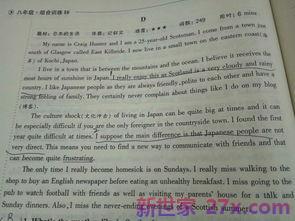 八年级·组合训练 58
D
题材：日本的生活 体裁：记叙文 词数：249 用时：6 mins
My name is Craig Hunter and I am a 25-year-old Scotsman. I come from a town just
south of Glasgow called East Kilbride. I now live in a small town on the eastern coast(海
岸) of Kochi, Japan.
I live in a town that is between the mountains and the ocean. I believe it receives the
most hours of sunshine in Japan. I really enjoy this as Scotland is a very cloudy and rainy
place. I like Japanese people as they are always friendly, polite to each other and have a
strong feeling of family. They certainly never complain about things like I do on my blog
(博客).
The culture shock(文化冲击) of living in Japan can be quite big at times and it can
be especially difficult if you are the only foreigner in the countryside town. I found the first
year quite difficult at times. I suppose the main difference is that Japanese people are not
very direct. This means you need to find a new way to communicate with friends and that
can become quite frustrating.
The only time I really become homesick is on Sundays. I really miss walking to the
shop to buy an English newspaper before eating an unhealthy breakfast. I miss going to the
pub to watch football with friends as well as visiting my parents' house for a talk and
Sunday dinners. Also, I miss the never-ending evenings of a Scottish summer.
新世家 27x.com